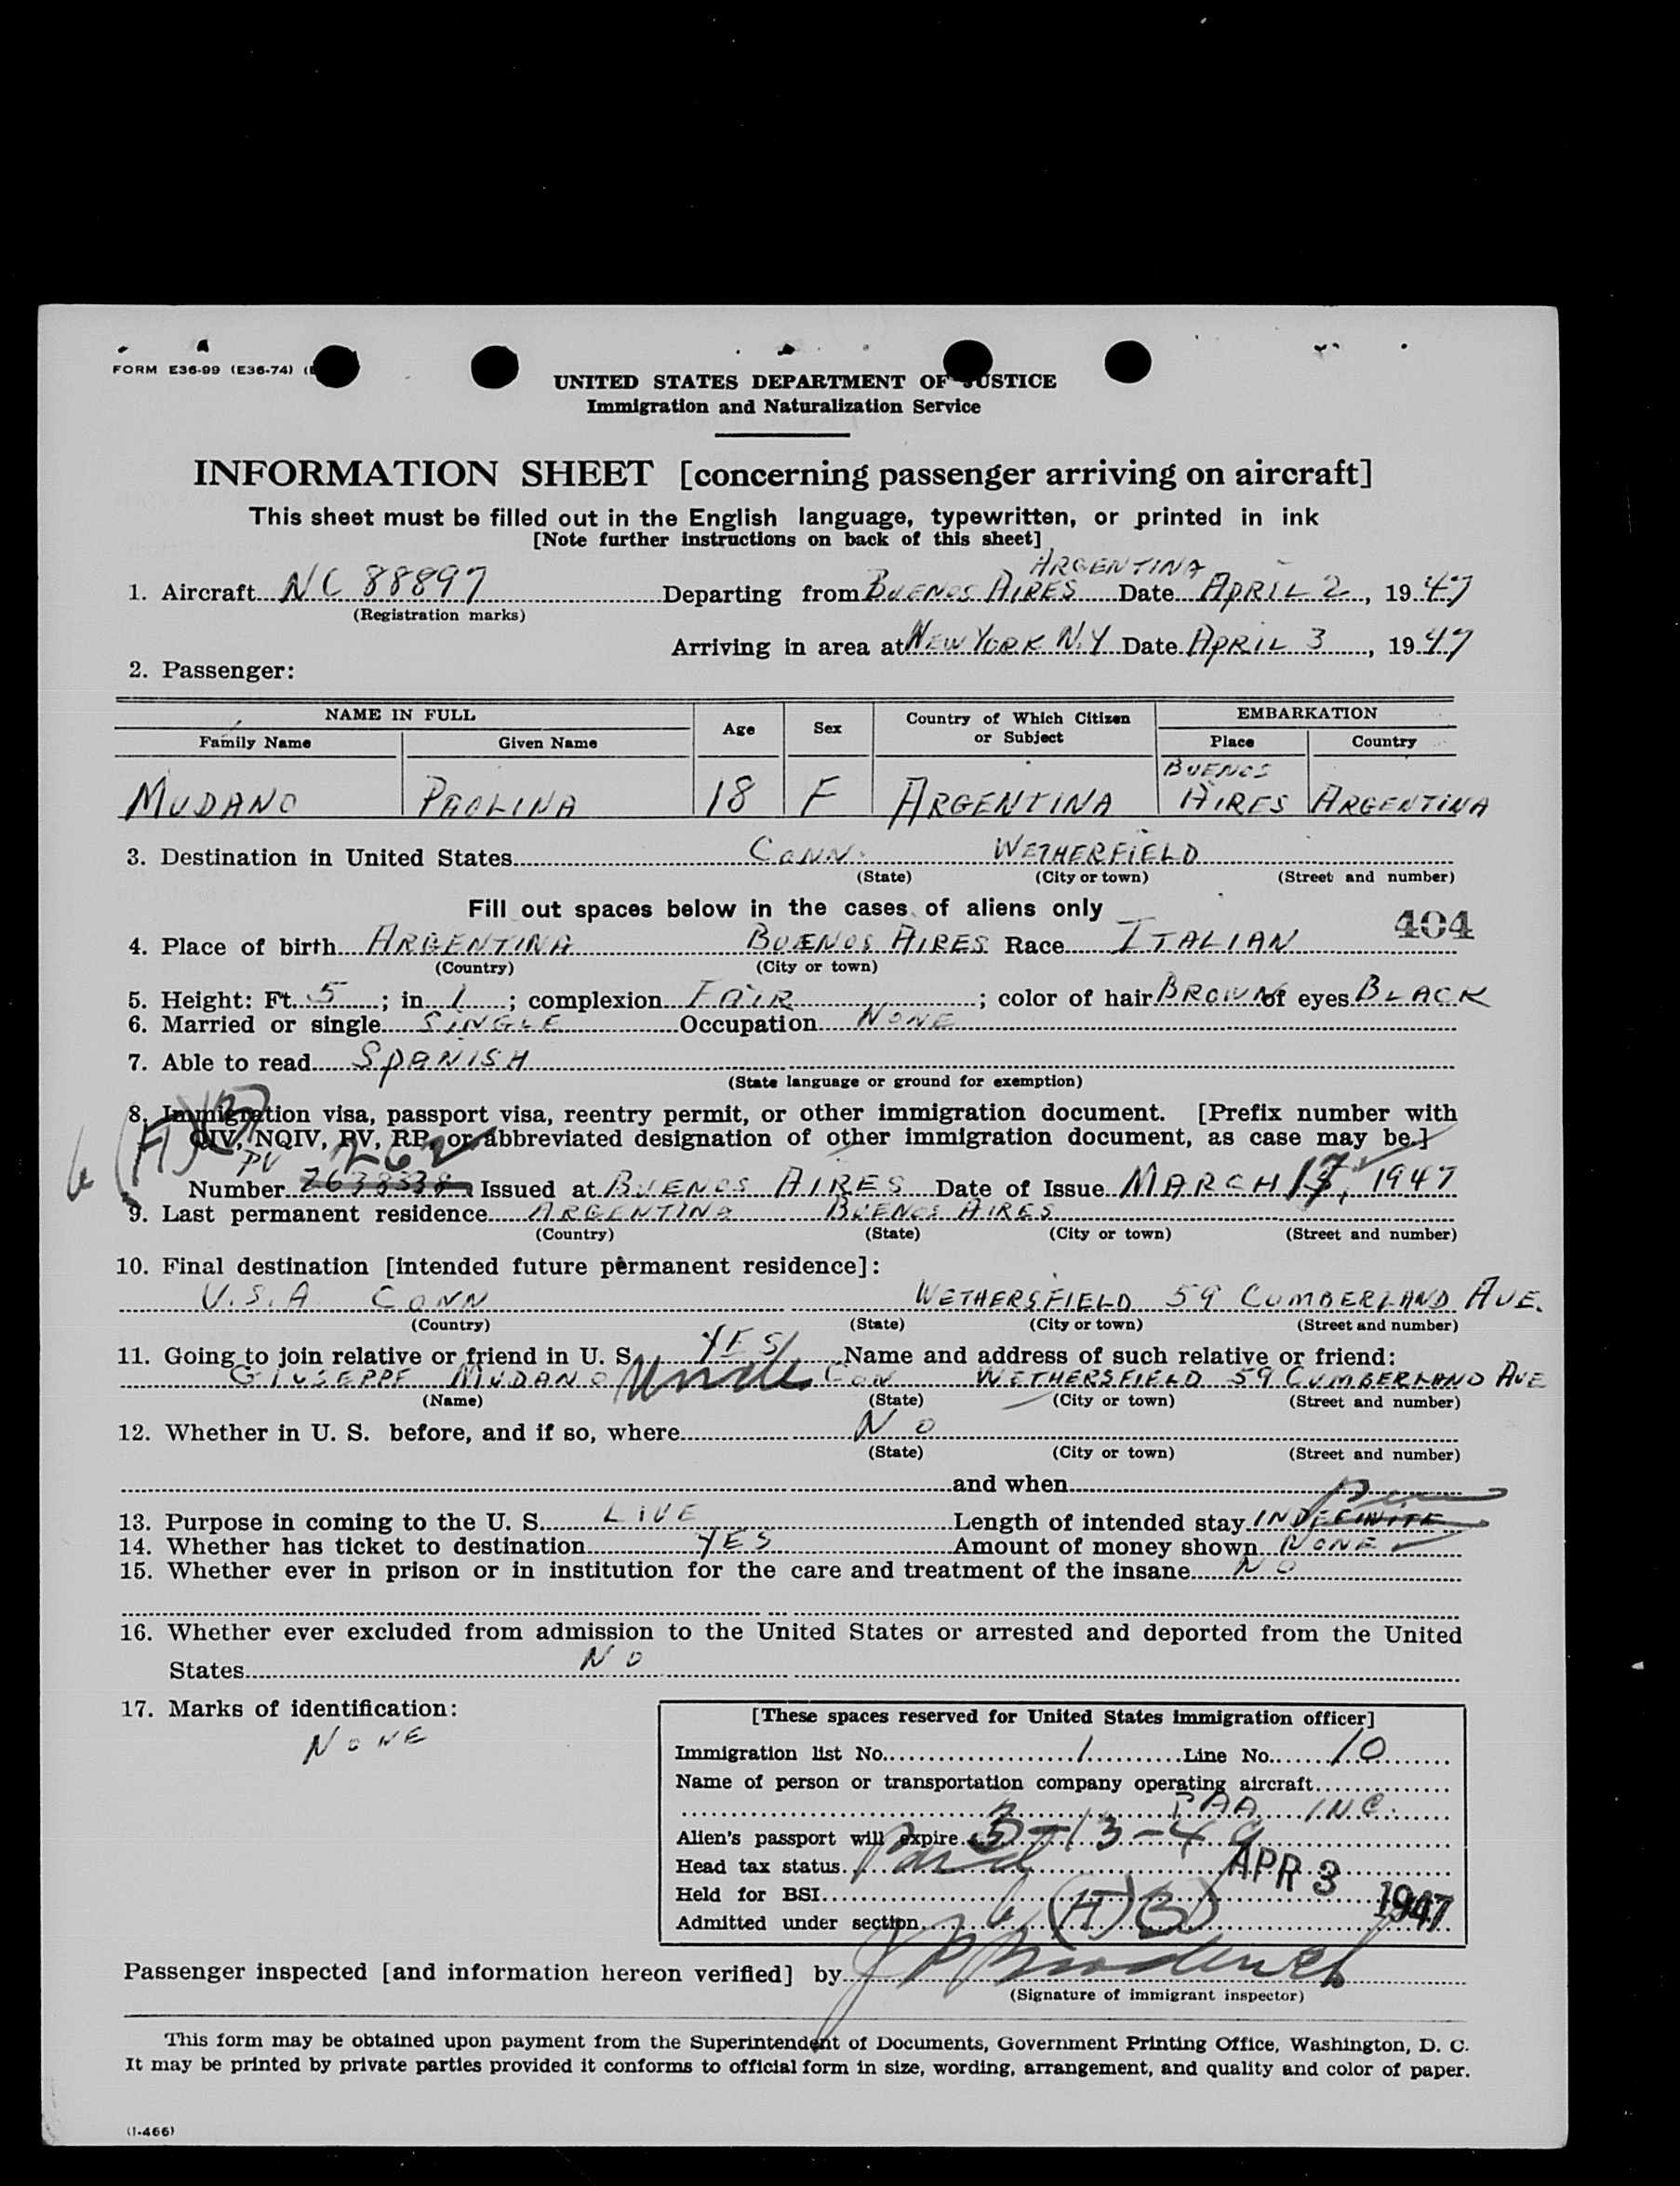 FORM E36-99 (E36-74)
UNITED STATES DEPARTMENT OF JUSTICE
Immigration and Naturalization Service
INFORMATION SHEET [concerning passenger arriving on aircraft]
This sheet must be filled out in the English language, typewritten, or printed in ink
[Note further instructions on back of this sheet]
ARGENTINA
1. Aircraft NC 88897 Departing from BUENOS AIRES Date APRIL 2, 1947
(Registration marks)
Arriving in area at NEW YORK N.Y Date APRIL 3, 1947
2. Passenger:
NAME IN FULL Age Sex Country of Which Citizen or Subject EMBARKATION
Family Name Given Name Place Country
MUDANO PAOLINA 18 F ARGENTINA BUENOS AIRES ARGENTINA
3. Destination in United States CONN. WETHERFIELD
(State) (City or town) (Street and number)
Fill out spaces below in the cases of aliens only
404
4. Place of birth ARGENTINA BUENOS AIRES Race ITALIAN
(Country) (City or town)
5. Height: Ft. 5; in 1; complexion FAIR; color of hair BROWN of eyes BLACK
6. Married or single SINGLE Occupation NONE
7. Able to read SPANISH
(State language or ground for exemption)
8. Immigration visa, passport visa, reentry permit, or other immigration document. [Prefix number with
QIV, NQIV, PV, RP, or abbreviated designation of other immigration document, as case may be.]
6 (A)(3)
PV 262
Number Issued at BUENOS AIRES Date of Issue MARCH 1947
9. Last permanent residence ARGENTINA BUENOS AIRES
(Country) (State) (City or town) (Street and number)
10. Final destination [intended future permanent residence]:
U.S.A CONN WETHERSFIELD 59 CUMBERLAND AVE.
(Country) (State) (City or town) (Street and number)
11. Going to join relative or friend in U. S. YES Name and address of such relative or friend:
GIUSEPPE MUDANO Uncle CON WETHERSFIELD 59 CUMBERLAND AVE
(Name) (State) (City or town) (Street and number)
12. Whether in U. S. before, and if so, where NO
(State) (City or town) (Street and number)
and when
13. Purpose in coming to the U. S. LIVE Length of intended stay INDEFINITE
14. Whether has ticket to destination YES Amount of money shown NONE
15. Whether ever in prison or in institution for the care and treatment of the insane NO
16. Whether ever excluded from admission to the United States or arrested and deported from the United
States NO
17. Marks of identification:
NONE
[These spaces reserved for United States immigration officer]
Immigration list No. 1 Line No. 10
Name of person or transportation company operating aircraft
PAA INC.
Alien's passport will expire 3-13-49
Head tax status Paid
APR 3 1947
Held for BSI
Admitted under section 6 (A)(3)
Passenger inspected [and information hereon verified] by
(Signature of immigrant inspector)
This form may be obtained upon payment from the Superintendent of Documents, Government Printing Office, Washington, D. C.
It may be printed by private parties provided it conforms to official form in size, wording, arrangement, and quality and color of paper.
(1-466)